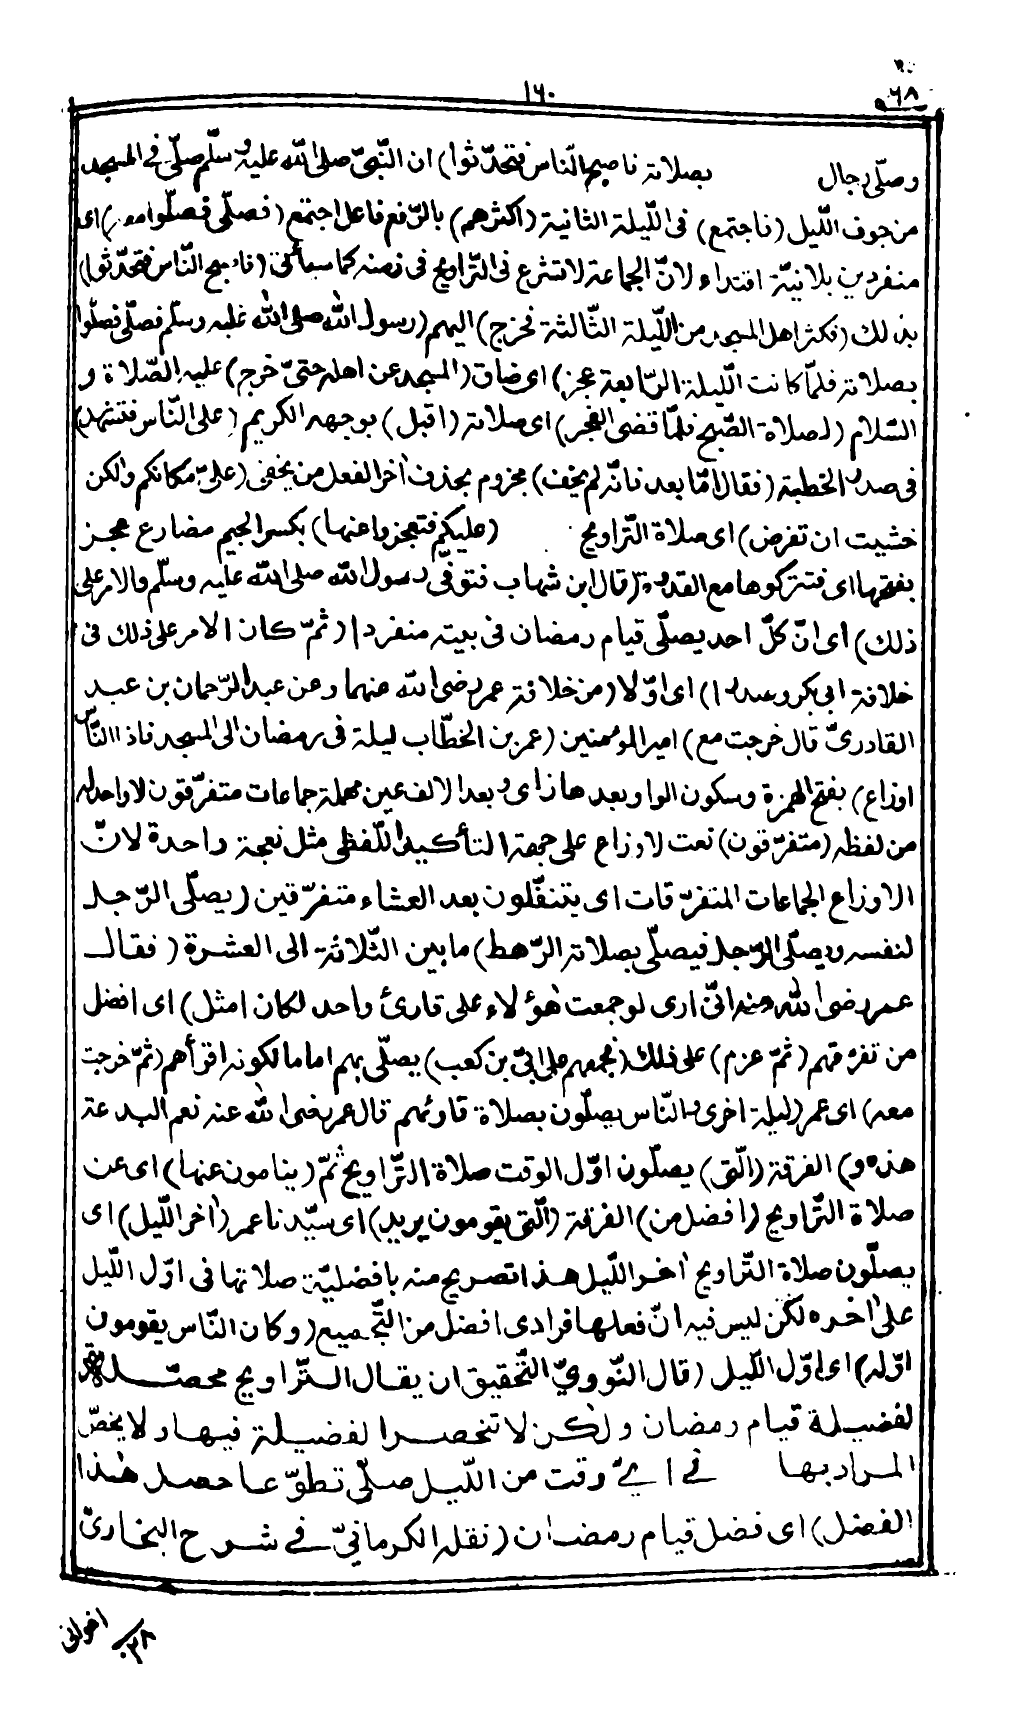 ١٦٠
٦٨
وصلّى رجال بصلاته فاصبح النّاس فتحدّثوا) ان النّبيّ صلى الله عليه وسلّم صلّى في المسجد
من جوف اللّيل (فاجتمع) فى اللّيلة الثانية (اكثرهم) بالرّفع فاعل اجتمع (فصلّى فصلّوا معه) اى
منفردين بلا نيّة اقتداء لانّ الجماعة لا تشرع فى التّراويح فى زمنه كما سيأتى (فاصبح النّاس فتحدّثوا)
بذلك (فكثر اهل المسجد من اللّيلة الثّالثة فخرج) اليهم (رسول الله صلى الله عليه وسلّم فصلّى فصلّوا
بصلاته فلمّا كانت اللّيلة الرّابعة عجز) اى ضاق (المسجد عن اهله حتىّ خرج) عليه الصّلاة و
السّلام (لصلاة الصّبح فلمّا قضى الفجر) اى صلاته (اقبل) بوجهه الكريم (على النّاس فتشهد)
فى صدر الخطبة (فقال امّا بعد فانّه لم يخف) مجزوم بحذف أخر الفعل من يخفى (علىّ مكانكم ولكن
خشيت ان تفرض) اى صلاة التّراويح (عليكم فتعجزوا عنها) بكسر الجيم مضارع عجز
بفتحها اى فتتركوها مع القدرة (قال ابن شهاب فتوفّى رسول الله صلى الله عليه وسلّم والامر على
ذلك) اى انّ كلّ احد يصلّى قيام رمضان فى بيته منفردا (ثمّ كان الامر على ذلك فى
خلافة ابى بكر وصدرا) اى اوّلا (من خلافة عمر رضى الله عنهما وعن عبد الرّحمان بن عبد
القادرىّ قال خرجت مع) امير المؤمنين (عمر بن الخطّاب ليلة فى رمضان الى المسجد فاذا النّاس
اوزاع) بفتح الهمزة وسكون الواو بعدها زاى وبعد الالف عين مهملة جماعات متفرّقون لا واحد له
من لفظه (متفرّقون) نعت لاوزاع على جهة التأكيد اللّفظى مثل نعجة واحدة لانّ
الاوزاع الجماعات المتفرّقات اى يتنفّلون بعد العشاء متفرّقين (يصلّى الرّجل
لنفسه ويصلّى الرّجل فيصلّى بصلاته الرّهط) ما بين الثّلاثة الى العشرة (فقال
عمر رضى الله عنه انّى ارى لو جمعت هؤلاء على قارئ واحد لكان امثل) اى افضل
من تفرقهم (ثمّ عزم) على ذلك (فجمعهم على ابىّ بن كعب) يصلّى بهم اماما لكونه اقرأهم (ثمّ خرجت
معه) اى عمر (ليلة اخرى والنّاس يصلّون بصلاة قارئهم قال عمر رضى الله عنه نعم البدعة
هذه و) الفرقة (الّتى) يصلّون اوّل الوقت صلاة التّراويح ثمّ (ينامون عنها) اى عن
صلاة التّراويح (افضل من) الفرقة (الّتى يقومون يريد) اى سيّدنا عمر (أخر اللّيل) اى
يصلّون صلاة التّراويح أخر اللّيل هذا تصريح منه بافضليّة صلاتها فى اوّل اللّيل
على أخره لكن ليس فيه انّ فعلها فرادى افضل من التّجميع (وكان النّاس يقومون
اوّله) اى اوّل اللّيل (قال النّووىّ التّحقيق ان يقال التّراويح محصّلة
لفضيلة قيام رمضان ولكن لا تنحصر الفضيلة فيها ولا يخصّ
المراد بها فى اىّ وقت من اللّيل صلّى تطوّعا حصل هذا
الفضل) اى فضل قيام رمضان (نقله الكرمانىّ فى شرح البخارىّ